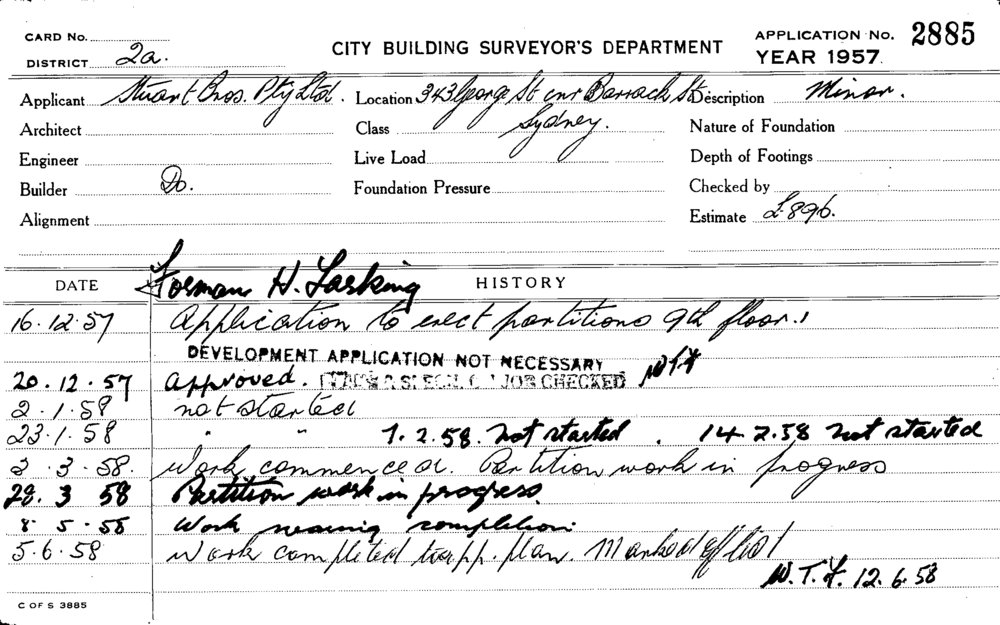 CARD No.
DISTRICT 2a.
CITY BUILDING SURVEYOR'S DEPARTMENT
APPLICATION No. 2885
YEAR 1957.
Applicant Stuart Bros. Pty Ltd. Location 343 George St cnr Barrack St Description Minor.
Architect Class Sydney. Nature of Foundation
Engineer Live Load Depth of Footings
Builder Do. Foundation Pressure Checked by
Alignment Estimate £896.
Forman H. Larking
DATE HISTORY
16.12.57 Application to erect partitions 9th floor.
DEVELOPMENT APPLICATION NOT NECESSARY
20.12.57 Approved. JOB CHECKED
2.1.58 not started
23.1.58 " " 7.2.58. Not started. 14.2.58 Not started
3.3.58. Work commenced. Partition work in progress
28.3 58 Partition work in progress.
8.5.58 Work nearing completion.
5.6.58 Work completed to app. plan. Marked off list
W.T.F. 12.6.58
C OF S 3885